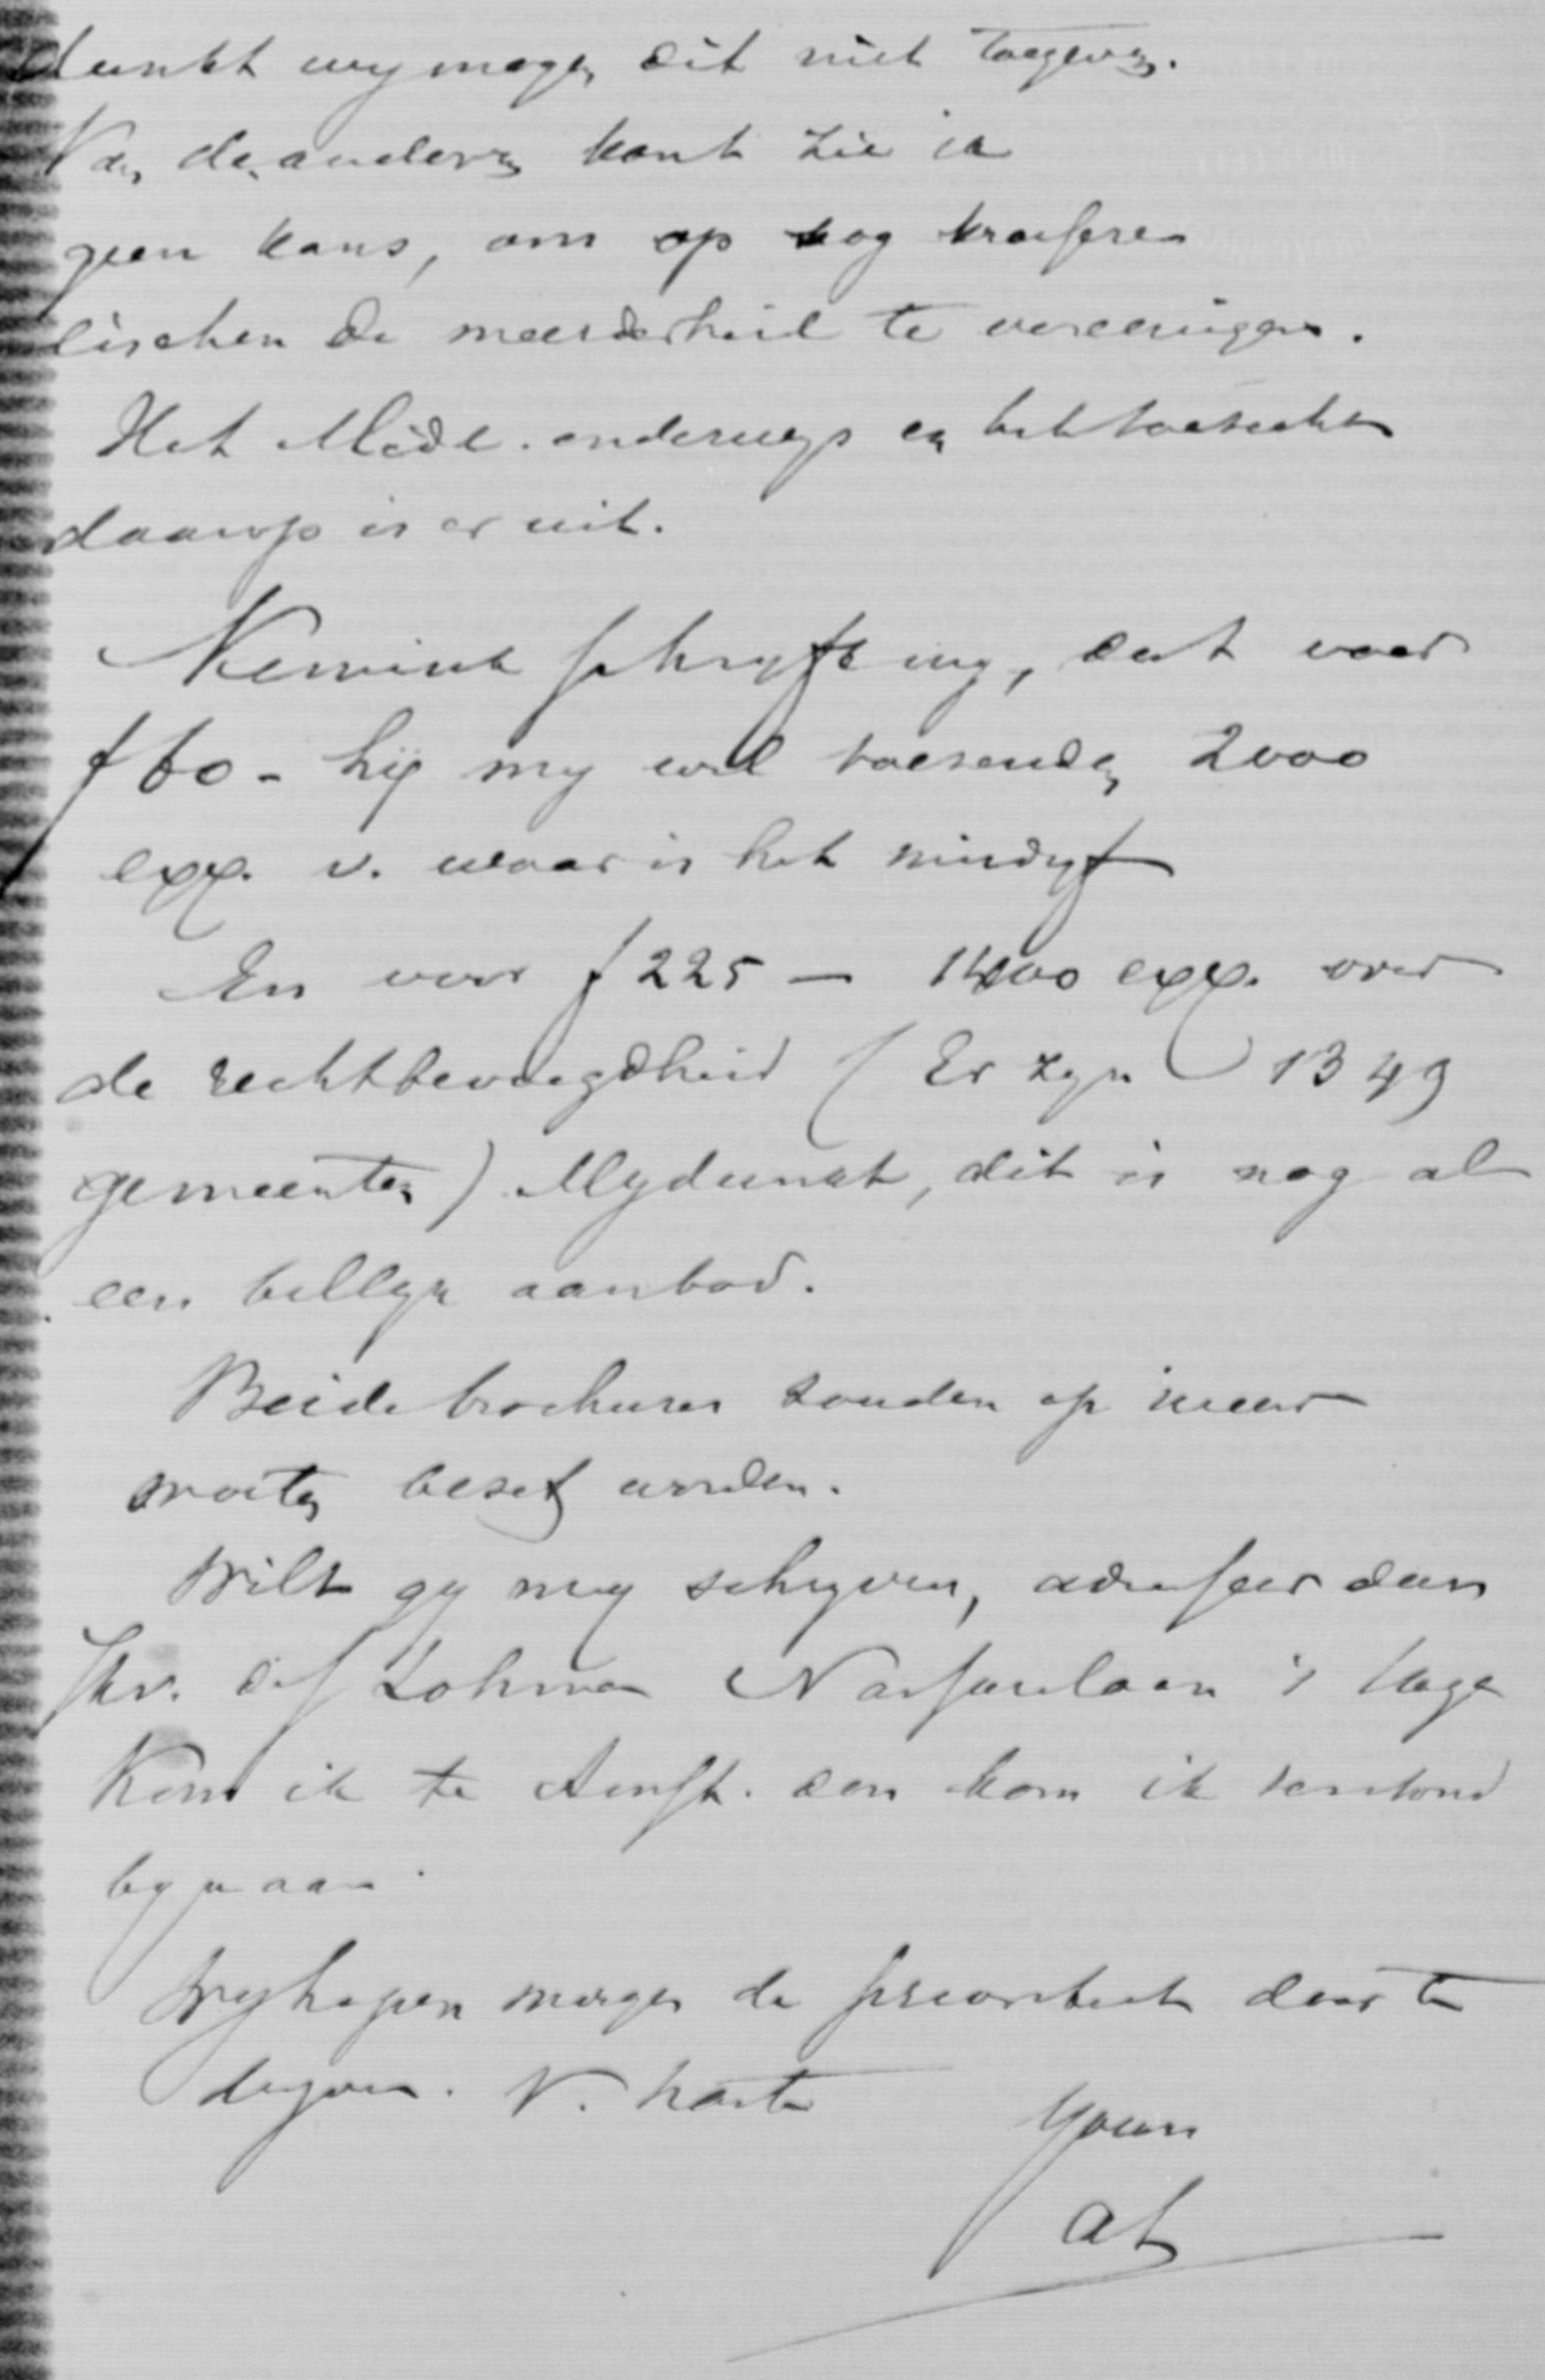 dunkt wy mogen dit niet toegeven.
Van de anderen kant zie ik
geen kans, om op nog krassere
eischen de meerderheid te vereenigen.
Het Midd. onderwijs en het toezicht
daarop is er uit.
schryft my, dat voor
f 60 - hij my wil toezenden 2000
expl. v. waar is het
En voor f 225 – 1400 expl. over
de rechtbevoegdheid (Er zyn 1349
gemeenten) Mydunkt, dit is nog al
een billyk aanbod.
Beide brochures zouden op nieuw
moeten gezet worden.
Wilt gy my schryven, adresseer dan
Jhr. de S Lohman Nassaulaan 's Hage
Kom ik te Amst. dan kom ik terstond
by u aan.
Wy hopen morgen de prioriteit door te
dryven. V. harte
Youwn